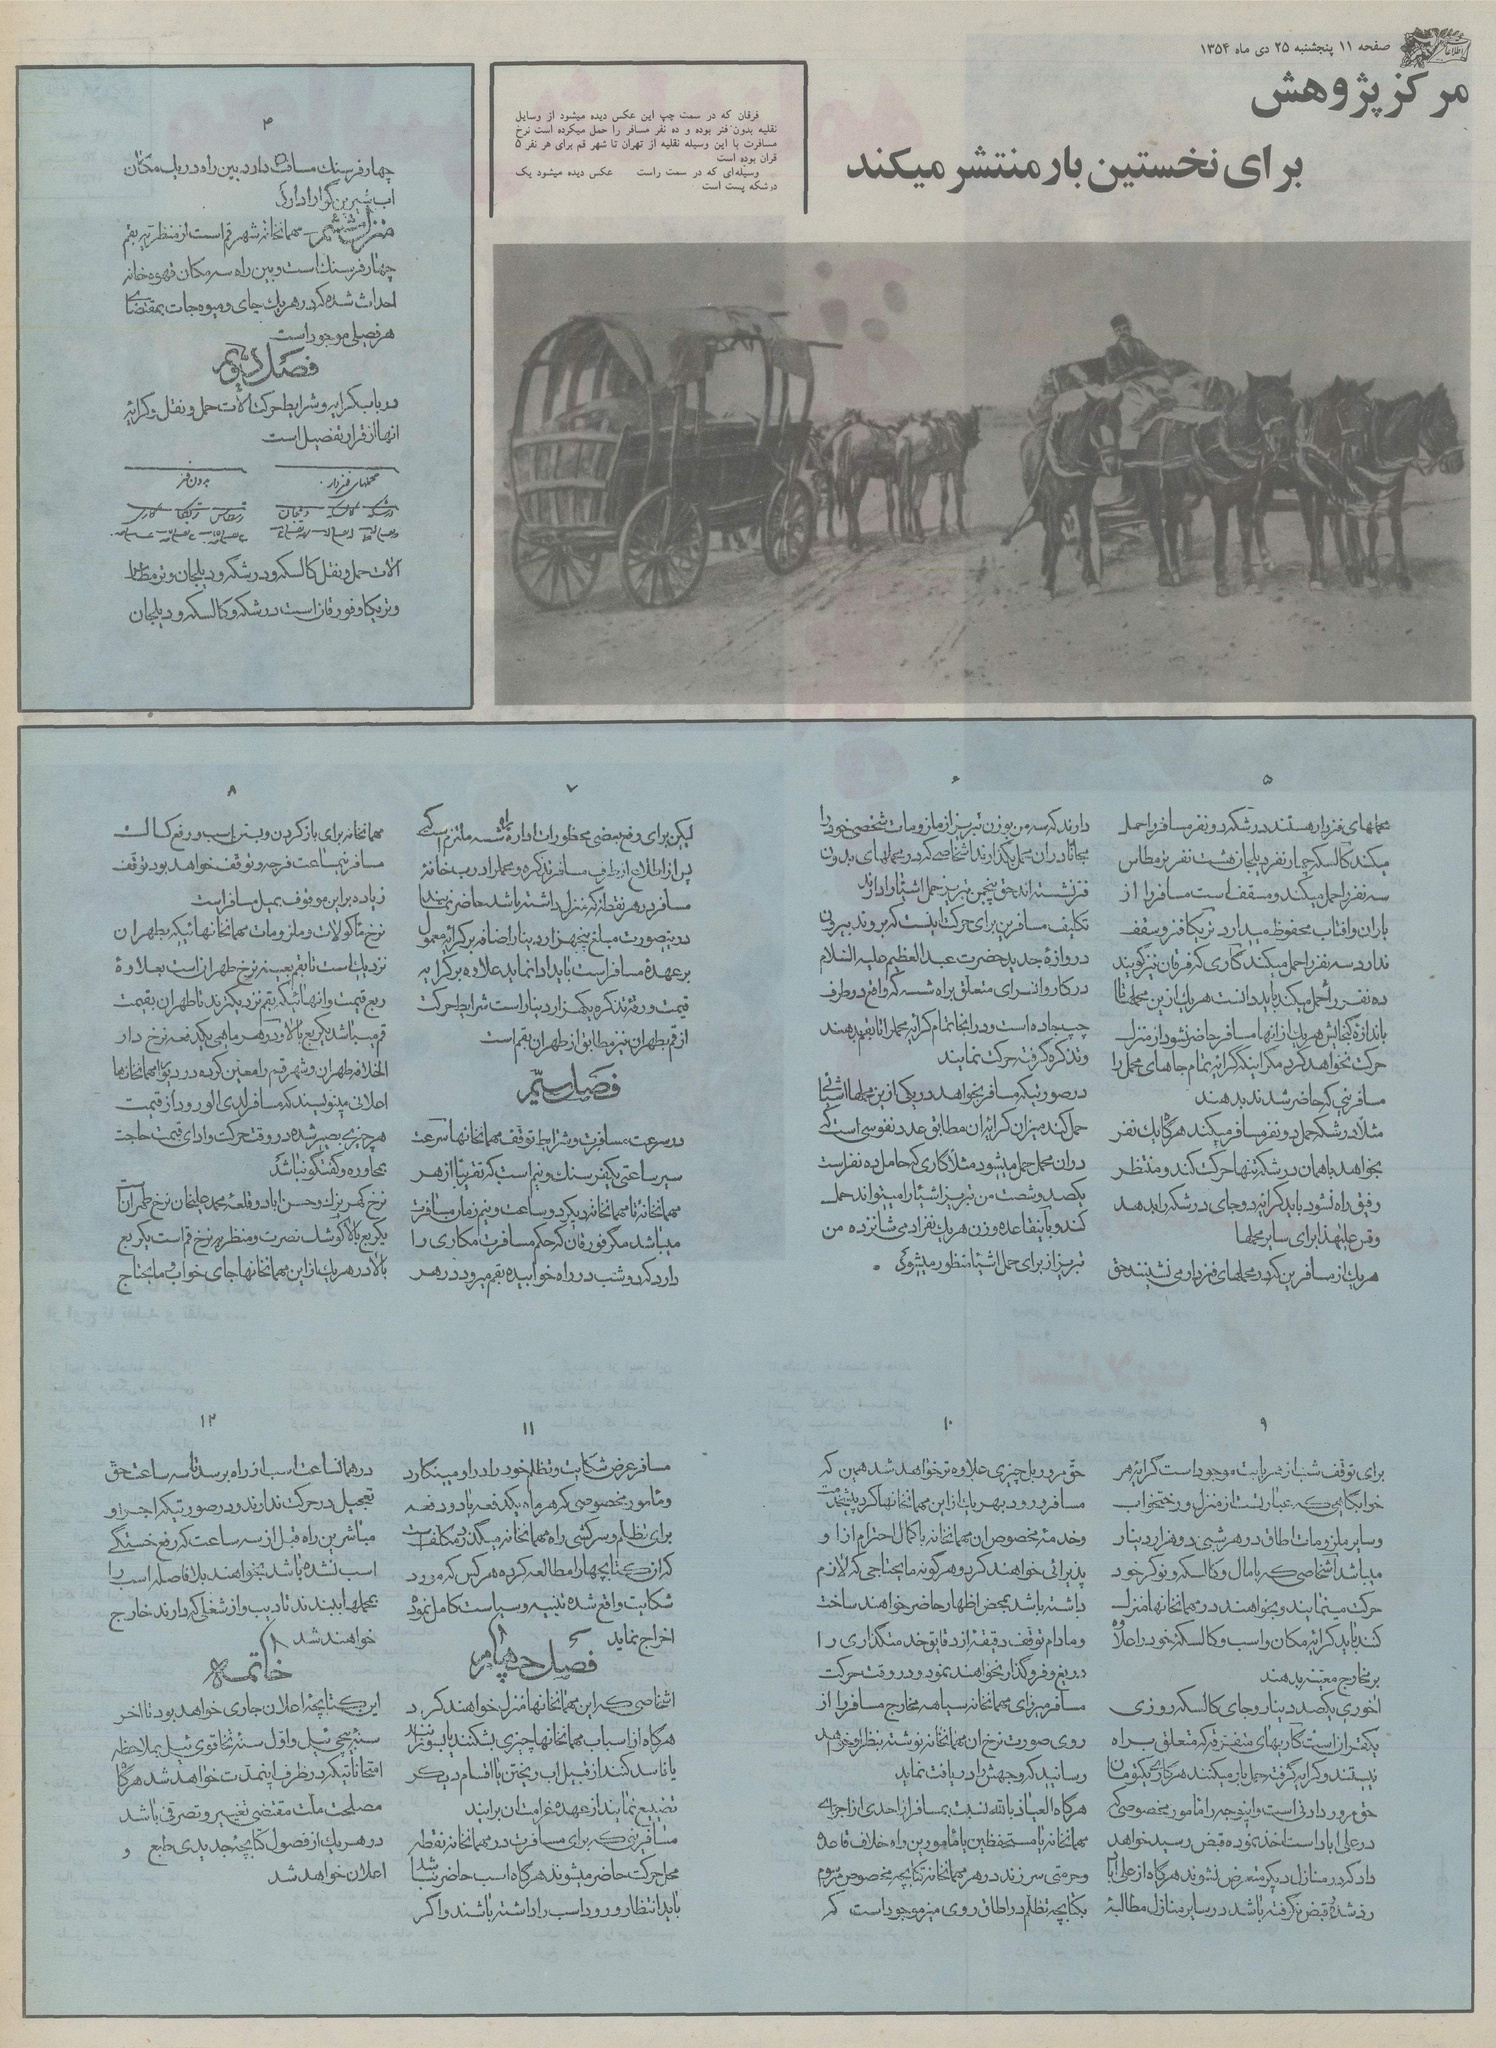 اطلاعات
صفحه ۱۱ پنجشنبه ۲۵ دی ماه ۱۳۵۴
مرکز پژوهش
برای نخستین بار منتشر میکند
فرقان که در سمت چپ این عکس دیده میشود از وسایل
نقلیه بدون فنر بوده و ده نفر مسافر را حمل میکرده است نرخ
مسافرت با این وسیله نقلیه از تهران تا شهر قم برای هر نفر ۵
قران بوده است
وسیله‌ای که در سمت راست عکس دیده میشود یک
درشکه پست است
۴
چهار فرسنك مسافت دارد بین راه در یك مکان
اب شیرین گوارا دارد
منزل ششم مهمانخانه شهر قم است از منظریه بقم
چهار فرسنك است و بین راه سه مکان قهوه خانه
احداث شده که در هر یك چای و میوه جات بمقتضای
هر فصلی موجود است
فصل دویم
در باب کرایه و شرایط حرکت الات حمل و نقل و کرایه
انها از قرار تفصیل است
محملهای فنر دار
بدون فنر
درشکه کالسکه دلیجان
گاری
الات حمل و نقل کالسکه و درشکه و دیلجان و ترمطاس
و تریکا و فورقان است درشکه و کالسکه و دیلجان
۵
محملهای فنردار هستند درشکه دو نفر مسافر را حمل
میکند کالسکه چهار نفر دیلجان هشت نفر ترمطاس
سه نفر را حمل میکند و مسقف است مسافر را از
باران و افتاب محفوظ میدارد تریکا فنر و سقف
ندارد سه نفر را حمل میکند گاری که فرقان نیز گویند
ده نفر را حمل میکند باید دانست هر یك از این محملها تا
باندازه گنجایش هر یك از انها مسافر حاضر نشود از منزل
حرکت نخواهد کرد مگر اینکه کرایه تمام جاهای محمل را
مسافرینی که حاضر شدند بدهند
مثلا درشکه حمل دو نفر مسافر میکند هرگاه یك نفر
بخواهد با همان درشکه تنها حرکت کند و منتظر
رفیق راه نشود باید کرایه دو جای درشکه را بدهد
و قس علیهذا برای سایر محملها
هر یك از مسافرین که در محملهای فنردار می نشینند حق
۶
دارند که سه من بوزن تبریز از ملزومات شخصی خود را
مجانا در ان محمل بگذارند اشخاصی که در محملهای بدون
فنر نشسته اند حق پنجمن تبریز حمل اشیا را دارند
تکلیف مسافرین برای حرکت اینست که بروند بیرون
دروازه جدید حضرت عبدالعظیم علیه السلام
در کاروانسرای متعلق براه شسه که واقع در طرف
چپ جاده است و در انجا تمام کرایه محمل را تا بقم بدهند
و تذکره گرفته حرکت نمایند
در صورتیکه مسافر بخواهد در یکی از این محملها اشیائی
حمل کند میزان کرایه ان مطابق عدد نفوسی است که
در ان محمل حمل میشود مثلا گاری که حامل ده نفر است
یکصد و شصت من تبریز اشیا را میتواند حمل
کند و باینقاعده وزن هر یك نفر ادمی شانزده من
تبریز از برای حمل اشیا منظور میشود
۷
لیکن برای رفع بعضی محظورات اداره راه شسه ملتزم است که
پس از اطلاع از طرف مسافر تذکره و محمل را درب خانه
مسافر در هر نقطه از که منزل داشته باشد حاضر نمایند
در اینصورت مبلغ پنجهزار دینار اضافه بر کرایه معمول
بر عهده مسافر است باید ادا نماید علاوه بر کرایه
قیمت ورقه تذکره یکهزار دینار است شرایط حرکت
از قم بطهران نیز مطابق از طهران بقم است
فصل سیم
در سرعت مسافرت و شرایط توقف مهمانخانها سرعت
سیر ساعتی یکفرسنك و نیم است که تقریبا از هر
مهمانخانه تا مهمانخانه دیگر دو ساعت و نیم زمان مسافرت
میباشد مگر فورقان که حکم مسافرت مکاری را
دارد که دو شب در راه خوابیده بقم میرود در هر
۸
مهمانخانه برای باز کردن و بستن اسب و رفع کسالت
مسافر نیمساعت فرجه و توقف خواهد بود توقف
زیاده بر این موقوف بمیل مسافر است
نرخ ماکولات و ملزومات مهمانخانهائیکه بطهران
نزدیك است تا بقم بعینه نرخ طهران است بعلاوه
ربع قیمت و انهائیکه بقم نزدیکترند تا طهران بقیمت
قم میباشد یکربع بالا و در هر ماهی یکدفعه نرخ دار
الخلافه طهران و شهر قم را معین کرده در دیوار مهمانخانها
اعلانی مینویسند که مسافر لدی الورود از قیمت
هر چیزی بصیر شده در وقت حرکت و ادای قیمت حاجت
بمحاوره و گفتگو نباشد
نرخ کهریزك و حسن اباد و قلعه محمد علیخان نرخ طهران است
یکربع بالا کوشك نصرت و منظریه نرخ قم است یکربع
بالا در هر یك از این مهمانخانها جای خواب و مایحتاج
۹
برای توقف شب از هر بابت موجود است کرایه هر
خوابگاهی که عبارتست از منزل و رختخواب
و سایر ملزومات اطاق در هر شبی دو هزار دینار
میباشد اشخاصی که با مال و کالسکه و نوکر خود
حرکت مینمایند و بخواهند در مهمانخانها منزل
کنند باید کرایه مکان و اسب و کالسکه خود را علاوه
بر مخارج معینه بدهند
اخوری یکصد دینار و جای کالسکه روزی
یکقران است گاریهای متفرقه که متعلق براه
نیستند و کرایه گرفته حمل بار میکنند هر گاری یکتومان
حق مرور دادنی است و اینوجه را مامور مخصوصی که
در علی اباد است اخذ نموده قبض رسید خواهد
داد که در منازل دیگر متعرض نشوند هرگاه از علی اباد
رد شده و قبض نگرفته باشد در سایر منازل مطالبه
۱۰
حق مرور پل چیزی علاوه تر خواهد شد همین که
مسافر ورود بهر یك از این مهمانخانها کرد پیشخدمت
و خدمه مخصوص ان مهمانخانه با کمال احترام از او
پذیرائی خواهند کرد و هر گونه مایحتاجی که لازم
داشته باشد بمحض اظهار حاضر خواهند ساخت
و مادام توقف دقیقه از دقایق خدمتگذاری را
دریغ و فروگذار نخواهند نمود و در وقت حرکت
مسافر میرزای مهمانخانه سیاهه مخارج مسافر را از
روی صورت نرخ ان مهمانخانه نوشته بنظر او خواهد
رسانید که وجهش را دریافت نماید
هرگاه العیاذ بالله نسبت بمسافر از احدی از اجزای
مهمانخانه یا مستحفظین یا مامورین راه خلاف قاعده
و حرمتی سر زند در هر مهمانخانه کتابچه مخصوص مرسوم
بکتابچه تظلم در اطاق روی میز موجود است که
۱۱
مسافر عرض شکایت و تظلم خود را در او مینگارد
و مامور مخصوصی که هر ماه یکدفعه یا دو دفعه
برای تنظیم و سرکشی راه مهمانخانه میگذرد مکلف است
که ان کتابچها را مطالعه کرده هر کس که مورد
شکایت واقع شده تنبیه و سیاست کامل نموده
اخراج نماید
فصل چهارم
اشخاصی که در این مهمانخانها منزل خواهند کرد
هرگاه از اسباب مهمانخانها چیزی بشکنند یا بسوزانند
یا فاسد کنند از قبیل اب ریختن یا اقسام دیگر
تضییع نمایند از عهده غرامت ان برایند
مسافرینی که برای مسافرت در مهمانخانه نقطه
محل حرکت حاضر میشوند هرگاه اسب حاضر نباشد
باید انتظار ورود اسب را داشته باشند و اگر
۱۲
در همانساعت اسب از راه برسد تا سه ساعت حق
تعجیل در حرکت ندارند و در صورتیکه اجزا و
مباشرین راه قبل از سه ساعت که رفع خستگی
اسب نشده باشد بخواهند بلافاصله اسب را
بمحملها ببندند تادیب و از شغلی که دارند خارج
خواهند شد
خاتمه
این کتابچه اعلان جاری خواهد بود تا اخر
سنه پیچی ئیل و اول سنه تخاقوی ئیل بملاحظه
امتحاناتیکه در ظرف اینمدت خواهد شد هرگاه
مصلحت ملت مقتضی تغییر و تصرفی باشد
در هر یك از فصول کتابچه جدیدی طبع و
اعلان خواهد شد